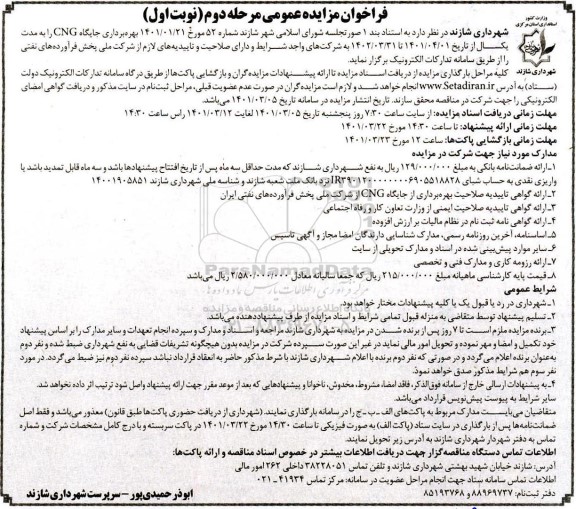 فراخوان مزایده عمومی مرحله دوم (نوبت اول)
وزارت کشور
استانداری استان مرکزی
شهرداری شازند
شهرداری شازند در نظر دارد به استناد بند ۱ صورتجلسه شورای اسلامی شهر شازند شماره ۵۲ مورخ ۱۴۰۱/۰۱/۲۱ بهره‌برداری جایگاه CNG را به مدت
یکسال از تاریخ ۱۴۰۱/۰۴/۰۱ تا ۱۴۰۲/۰۳/۳۱ به شرکت‌های واجد شرایط و دارای صلاحیت و تاییدیه‌های لازم از شرکت ملی پخش فرآورده‌های نفتی
را از طریق سامانه تدارکات الکترونیک برگزار نماید.
کلیه مراحل بارگذاری مزایده از دریافت اسناد مزایده تا ارائه پیشنهادات مزایده‌گران و بازگشایی پاکت‌ها از طریق درگاه سامانه تدارکات الکترونیک دولت
(ستاد) به آدرس www.Setadiran.ir انجام خواهد شد و لازم است مزایده‌گران در صورت عدم عضویت قبلی، مراحل ثبت‌نام در سایت مذکور و دریافت گواهی امضای
الکترونیکی را جهت شرکت در مناقصه محقق سازند. تاریخ انتشار مزایده در سامانه تاریخ ۱۴۰۱/۰۳/۰۵ می‌باشد.
مهلت زمانی دریافت اسناد مزایده: از ساعت ۷:۳۰ روز پنجشنبه تاریخ ۱۴۰۱/۰۳/۰۵ لغایت ۱۴۰۱/۰۳/۱۲ راس ساعت ۱۴:۳۰
مهلت زمانی ارائه پیشنهاد: تا ساعت ۱۴:۳۰ مورخ ۱۴۰۱/۰۳/۲۲
مهلت زمانی بازگشایی پاکت‌ها: ساعت ۱۲ مورخ ۱۴۰۱/۰۳/۲۳
مدارک مورد نیاز جهت شرکت در مزایده
۱-ارائه ضمانت‌نامه بانکی به مبلغ ۱۲۹/۰۰۰/۰۰۰ ریال به نفع شهرداری شازند که مدت حداقل سه ماه پس از تاریخ افتتاح پیشنهادها باشد و سه ماه قابل تمدید باشد یا
واریزی نقدی به حساب شبای نزد بانک ملت شعبه شازند و شناسه ملی شهرداری شازند ۱۴۰۰۱۹۰۵۸۵۱
۲-ارائه گواهی تاییدیه صلاحیت بهره‌برداری از جایگاه CNG از شرکت ملی پخش فرآورده‌های نفتی ایران
۳-ارائه گواهی تاییدیه صلاحیت ایمنی از وزارت تعاون کار و رفاه اجتماعی
۴-ارائه گواهی نامه ثبت نام در نظام مالیات بر ارزش افزوده
۵-اساسنامه، آخرین روزنامه رسمی، مدارک شناسایی دارندگان امضا مجاز و آگهی تاسیس
۶-سایر موارد پیش‌بینی شده در اسناد و مدارک تحویلی از سایت
۷-ارائه رزومه کاری و مدارک فنی و تخصصی
۸-قیمت پایه کارشناسی ماهیانه مبلغ ۲۱۵/۰۰۰/۰۰۰ ریال که جمعا سالیانه معادل ۲/۵۸۰/۰۰۰/۰۰۰ ریال می‌باشد.
شرایط عمومی
۱-شهرداری در رد یا قبول یک یا کلیه پیشنهادات مختار خواهد بود.
۲-تسلیم پیشنهاد توسط متقاضی به منزله قبول تمامی شرایط و اسناد مزایده از طرف پیشنهاددهنده می‌باشد.
۳-برنده مزایده ملزم است تا ۷ روز پس از برنده شدن در مزایده به شهرداری شازند مراجعه و اسناد و مدارک و سپرده انجام تعهدات و سایر مدارک را بر اساس پیشنهاد
خود تکمیل و امضا و مهر نموده و تحویل امور مالی نماید در غیر این صورت سپرده شرکت در مزایده بدون هیچگونه تشریفات قضایی به نفع شهرداری ضبط شده و نفر دوم
به‌عنوان برنده اعلام می‌گردد و در صورتی که نفر دوم برنده با اعلام شهرداری شازند با شرط مذکور حاضر به انعقاد قرارداد نباشد سپرده نفر دوم نیز ضبط می گردد. در مورد
نفر سوم هم شرایط مذکور صدق خواهد نمود.
۴-به پیشنهادات ارسالی خارج از سامانه فوق‌الذکر، فاقد امضا، مشروط، مخدوش، ناخوانا و پیشنهادهایی که بعد از موعد مقرر جهت ارائه پیشنهاد واصل شود ترتیب اثر داده نخواهد شد.
سایر شرایط به پیوست پیش‌نویس قرارداد می‌باشد.
متقاضیان می‌بایست مدارک مربوط به پاکت‌های الف ـ ب ـ ج را در سامانه بارگذاری نمایند. (شهرداری از دریافت حضوری پاکت‌ها طبق قانون) معذور می‌باشد و فقط اصل
ضمانت‌نامه‌ها پس از بارگذاری در سایت ستاد (پاکت الف) به صورت فیزیکی تا ساعت ۱۴:۳۰ مورخ ۱۴۰۱/۰۳/۲۲ در پاکت سربسته و با درج کامل مشخصات شرکت و شماره
تماس به دفتر شهردار شهرداری شازند به آدرس زیر تحویل نمایند.
اطلاعات تماس دستگاه مناقصه‌گزار جهت دریافت اطلاعات بیشتر در خصوص اسناد مناقصه و ارائه پاکت‌ها:
آدرس: شازند خیابان شهید بهشتی شهرداری شازند و تلفن تماس ۳۸۲۲۸۰۵۱ داخلی ۲۶۲ امور مالی
اطلاعات تماس سامانه ستاد جهت انجام مراحل عضویت در سامانه: مرکز تماس ۴۱۹۳۴-۰۲۱
دفتر ثبت‌نام: ۸۸۹۶۹۷۳۷ و ۸۵۱۹۳۷۶۸
ابوذر حمیدی‌پور – سرپرست شهرداری شازند